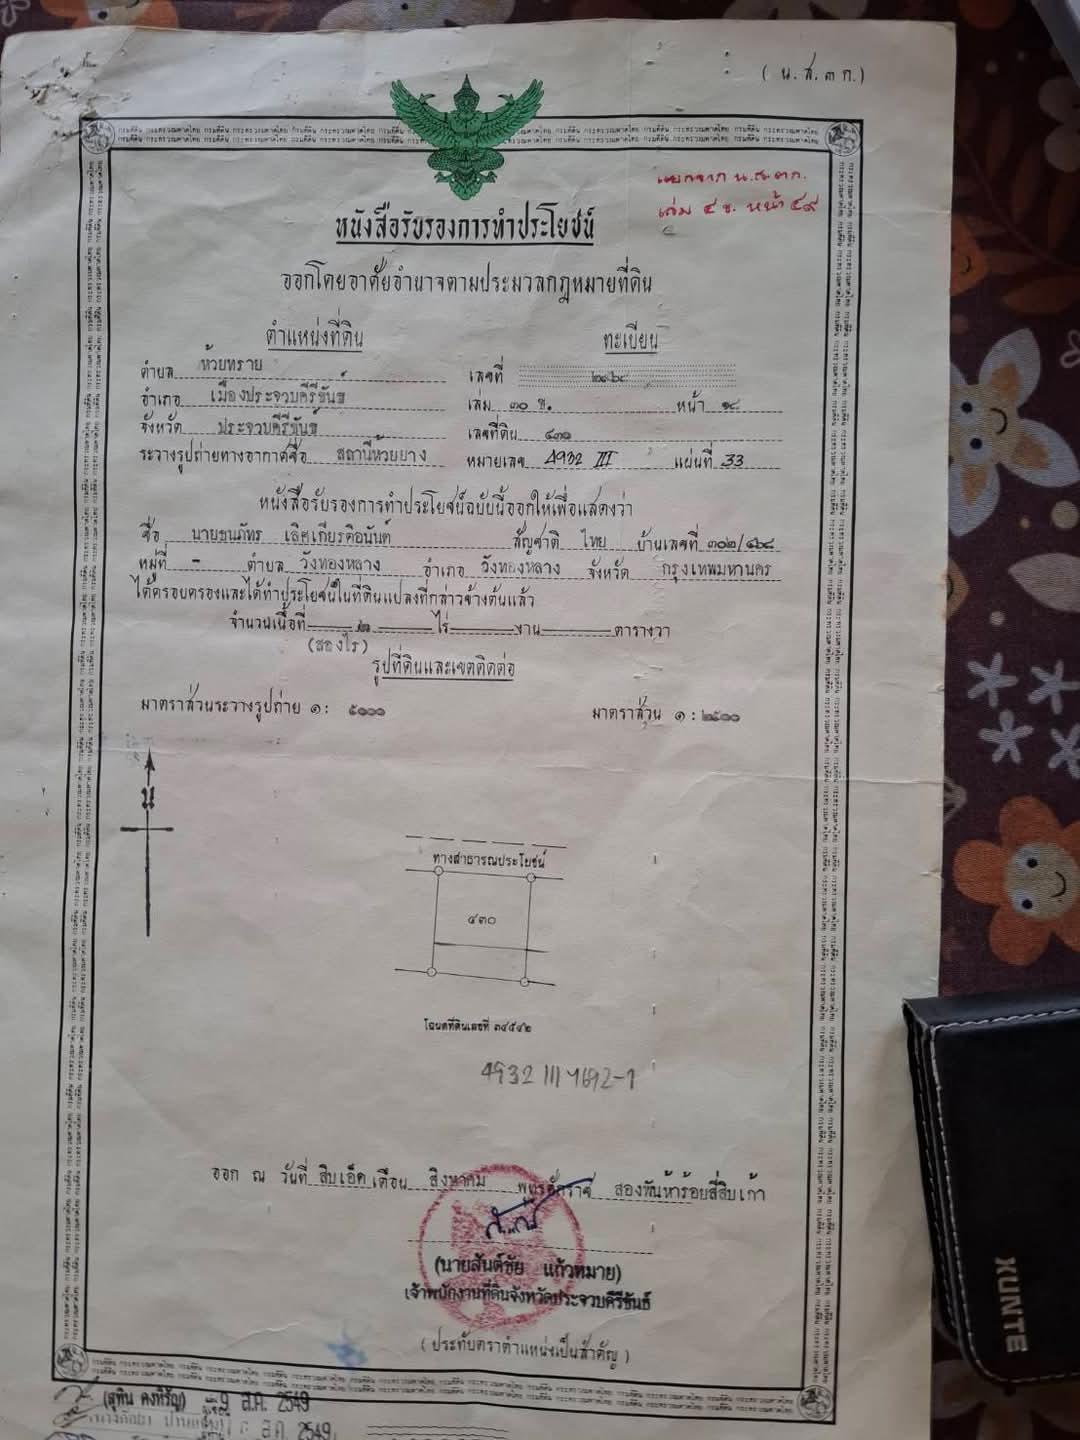 ( น.ส.๓ ก.)
แยกจาก น.ส.๓ก.
เล่ม ๔ ข. หน้า ๔๙
หนังสือรับรองการทำประโยชน์
ออกโดยอาศัยอำนาจตามประมวลกฎหมายที่ดิน
ตำแหน่งที่ดิน ทะเบียน
ตำบล ห้วยทราย เลขที่
อำเภอ เมืองประจวบคีรีขันธ์ เล่ม ๓๐ ข. หน้า ๑๘
จังหวัด ประจวบคีรีขันธ์ เลขที่ดิน ๔๓๑
ระวางรูปถ่ายทางอากาศชื่อ สถานีห้วยยาง หมายเลข 4932 III แผ่นที่ 33
หนังสือรับรองการทำประโยชน์ฉบับนี้ออกให้เพื่อแสดงว่า
ชื่อ นายธนภัทร เลิศเกียรติอนันต์ สัญชาติ ไทย บ้านเลขที่ ๓๐๒/๔๖๘
หมู่ที่ - ตำบล วังทองหลาง อำเภอ วังทองหลาง จังหวัด กรุงเทพมหานคร
ได้ครอบครองและได้ทำประโยชน์ในที่ดินแปลงที่กล่าวข้างต้นแล้ว
จำนวนเนื้อที่ ๒ ไร่ งาน ตารางวา
(สองไร่)
รูปที่ดินและเขตติดต่อ
มาตราส่วนระวางรูปถ่าย ๑ : ๕๐๐๐ มาตราส่วน ๑ : ๒๕๐๐
น
ทางสาธารณประโยชน์
๔๓๐
โฉนดที่ดินเลขที่ ๓๔๕๔๒
4932 III 7692-1
ออก ณ วันที่ สิบเอ็ด เดือน สิงหาคม พุทธศักราช สองพันห้าร้อยสี่สิบเก้า
(นายสันต์ชัย แก้วหมาย)
เจ้าพนักงานที่ดินจังหวัดประจวบคีรีขันธ์
(ประทับตราตำแหน่งเป็นสำคัญ)
(สุทิน คงหิรัญ) 9 ส.ค. 2549
ส.ค. 2549
XUNTE